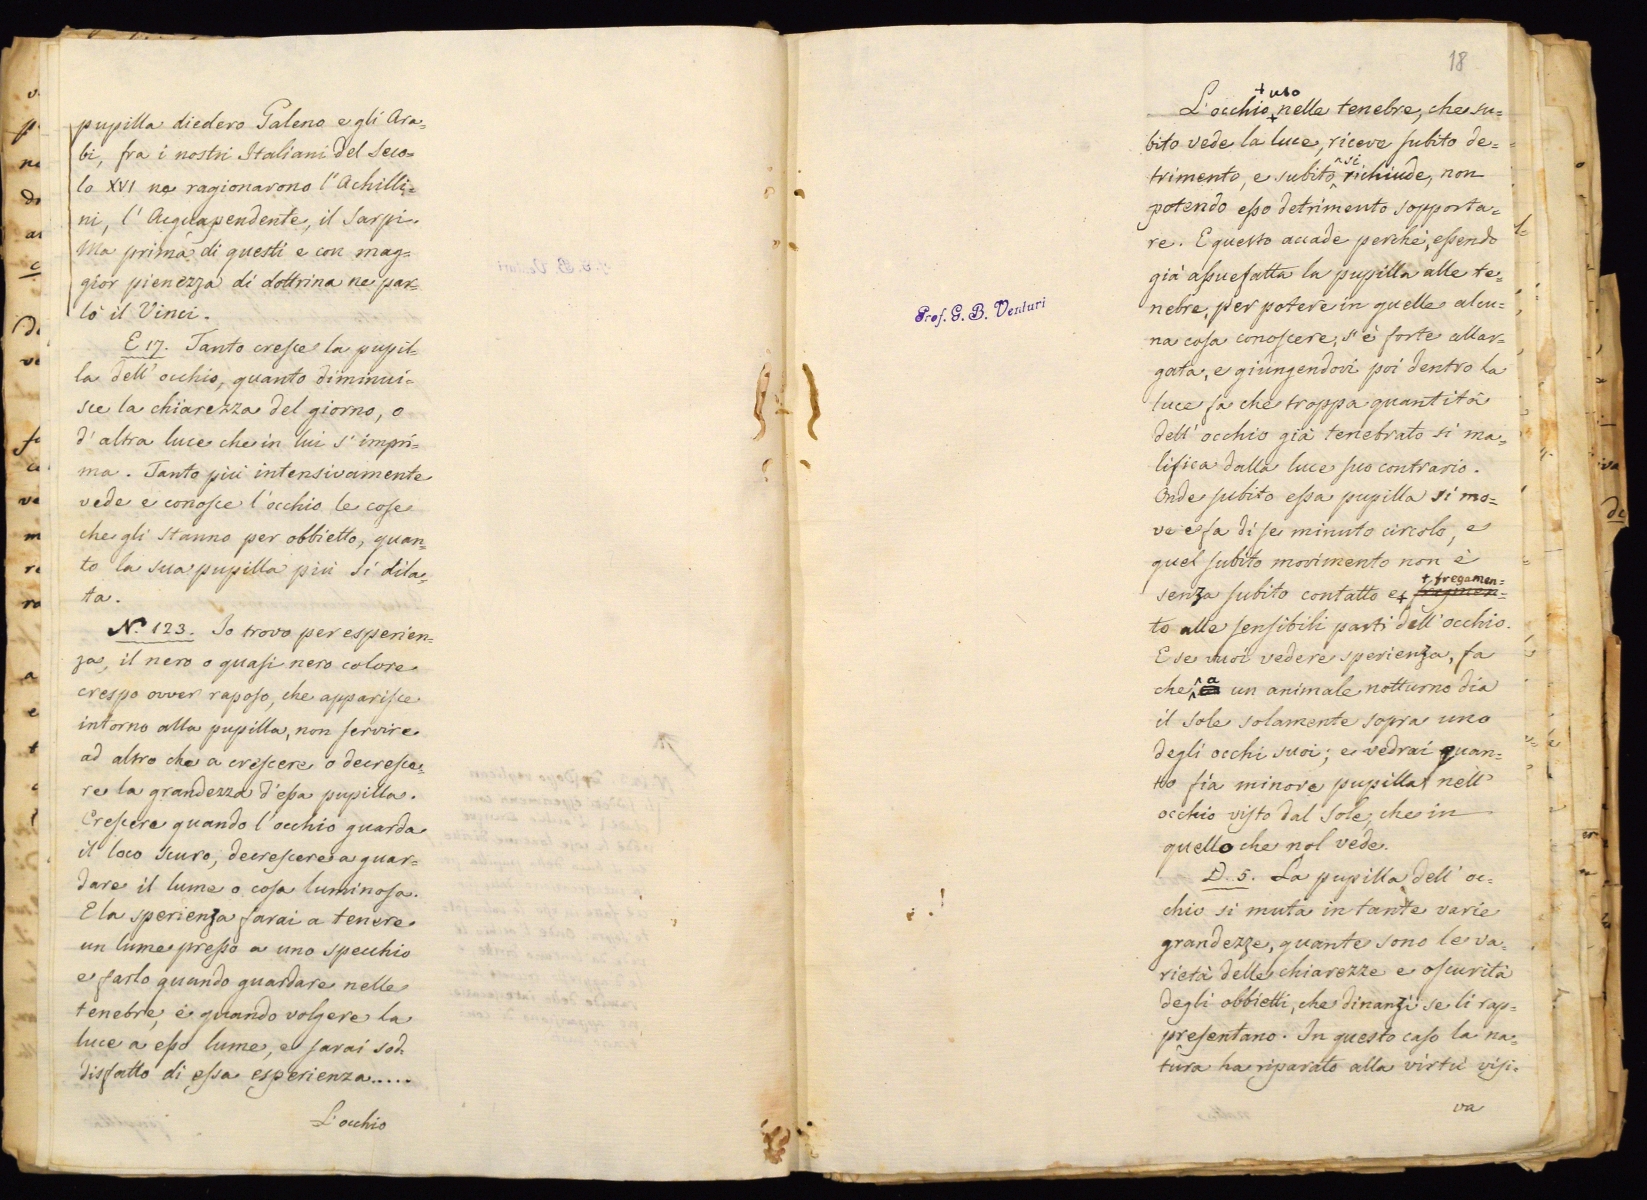 pupilla diedero Galeno e gli Ara=
bi, fra i nostri Italiani del Seco=
lo XVI ne ragionarono l'Achilli=
ni, l'Acquapendente, il Sarpi.
Ma prima di questi e con mag=
gior pienezza di dottrina ne par=
lò il Vinci.
E 17. Tanto cresce la pupil=
la dell'occhio, quanto diminui=
sce la chiarezza del giorno, o
d'altra luce che in lui s'impri=
ma. Tanto più intensivamente
vede e conosce l'occhio le cose
che gli stanno per obbietto, quan=
to la sua pupilla più si dila=
ta.
N. 123. Io trovo per esperien=
za, il nero o quasi nero colore
crespo ovver raposo, che apparisce
intorno alla pupilla, non servire
ad altro che a crescere o decresce=
re la grandezza d'essa pupilla.
Crescere quando l'occhio guarda
il loco scuro, decrescere a guar=
dare il lume o cosa luminosa.
E la sperienza farai a tenere
un lume presso a uno specchio
e farlo quando guardare nelle
tenebre, e quando volgere la
luce a esso lume, e sarai sod=
disfatto di essa esperienza.....
L'occhio
Prof. G. B. Venturi
18
+ uso
L'occhio + nelle tenebre, che su=
bito vede la luce, riceve subito de=
trimento, e subito ^si richiude, non
potendo esso detrimento sopporta=
re. E questo accade perchè, essendo
già assuefatta la pupilla alle te=
nebre, per potere in quelle alcu=
na cosa conoscere, s'è forte allar=
gata, e giungendovi poi dentro la
luce fa che troppa quantità
dell'occhio già tenebrato si ma=
lifica dalla luce suo contrario.
Onde subito essa pupilla si mo=
ve e fa di se minuto circolo, e
quel subito movimento non è
+ fregamen=
senza subito contatto e +
to alle sensibili parti dell'occhio.
E se vuoi vedere sperienza, fa
che ^a un animale notturno dia
il sole solamente sopra uno
degli occhi suoi; e vedrai quan=
to fia minore pupilla nell'
occhio visto dal sole, che in
quello che nol vede.
D. 5. La pupilla dell'oc=
chio si muta in tante varie
grandezze, quante sono le va=
rietà delle chiarezze e oscurità
degli obbietti, che dinanzi se li rap=
presentano. In questo caso la na=
tura ha riparato alla virtù visi=
va